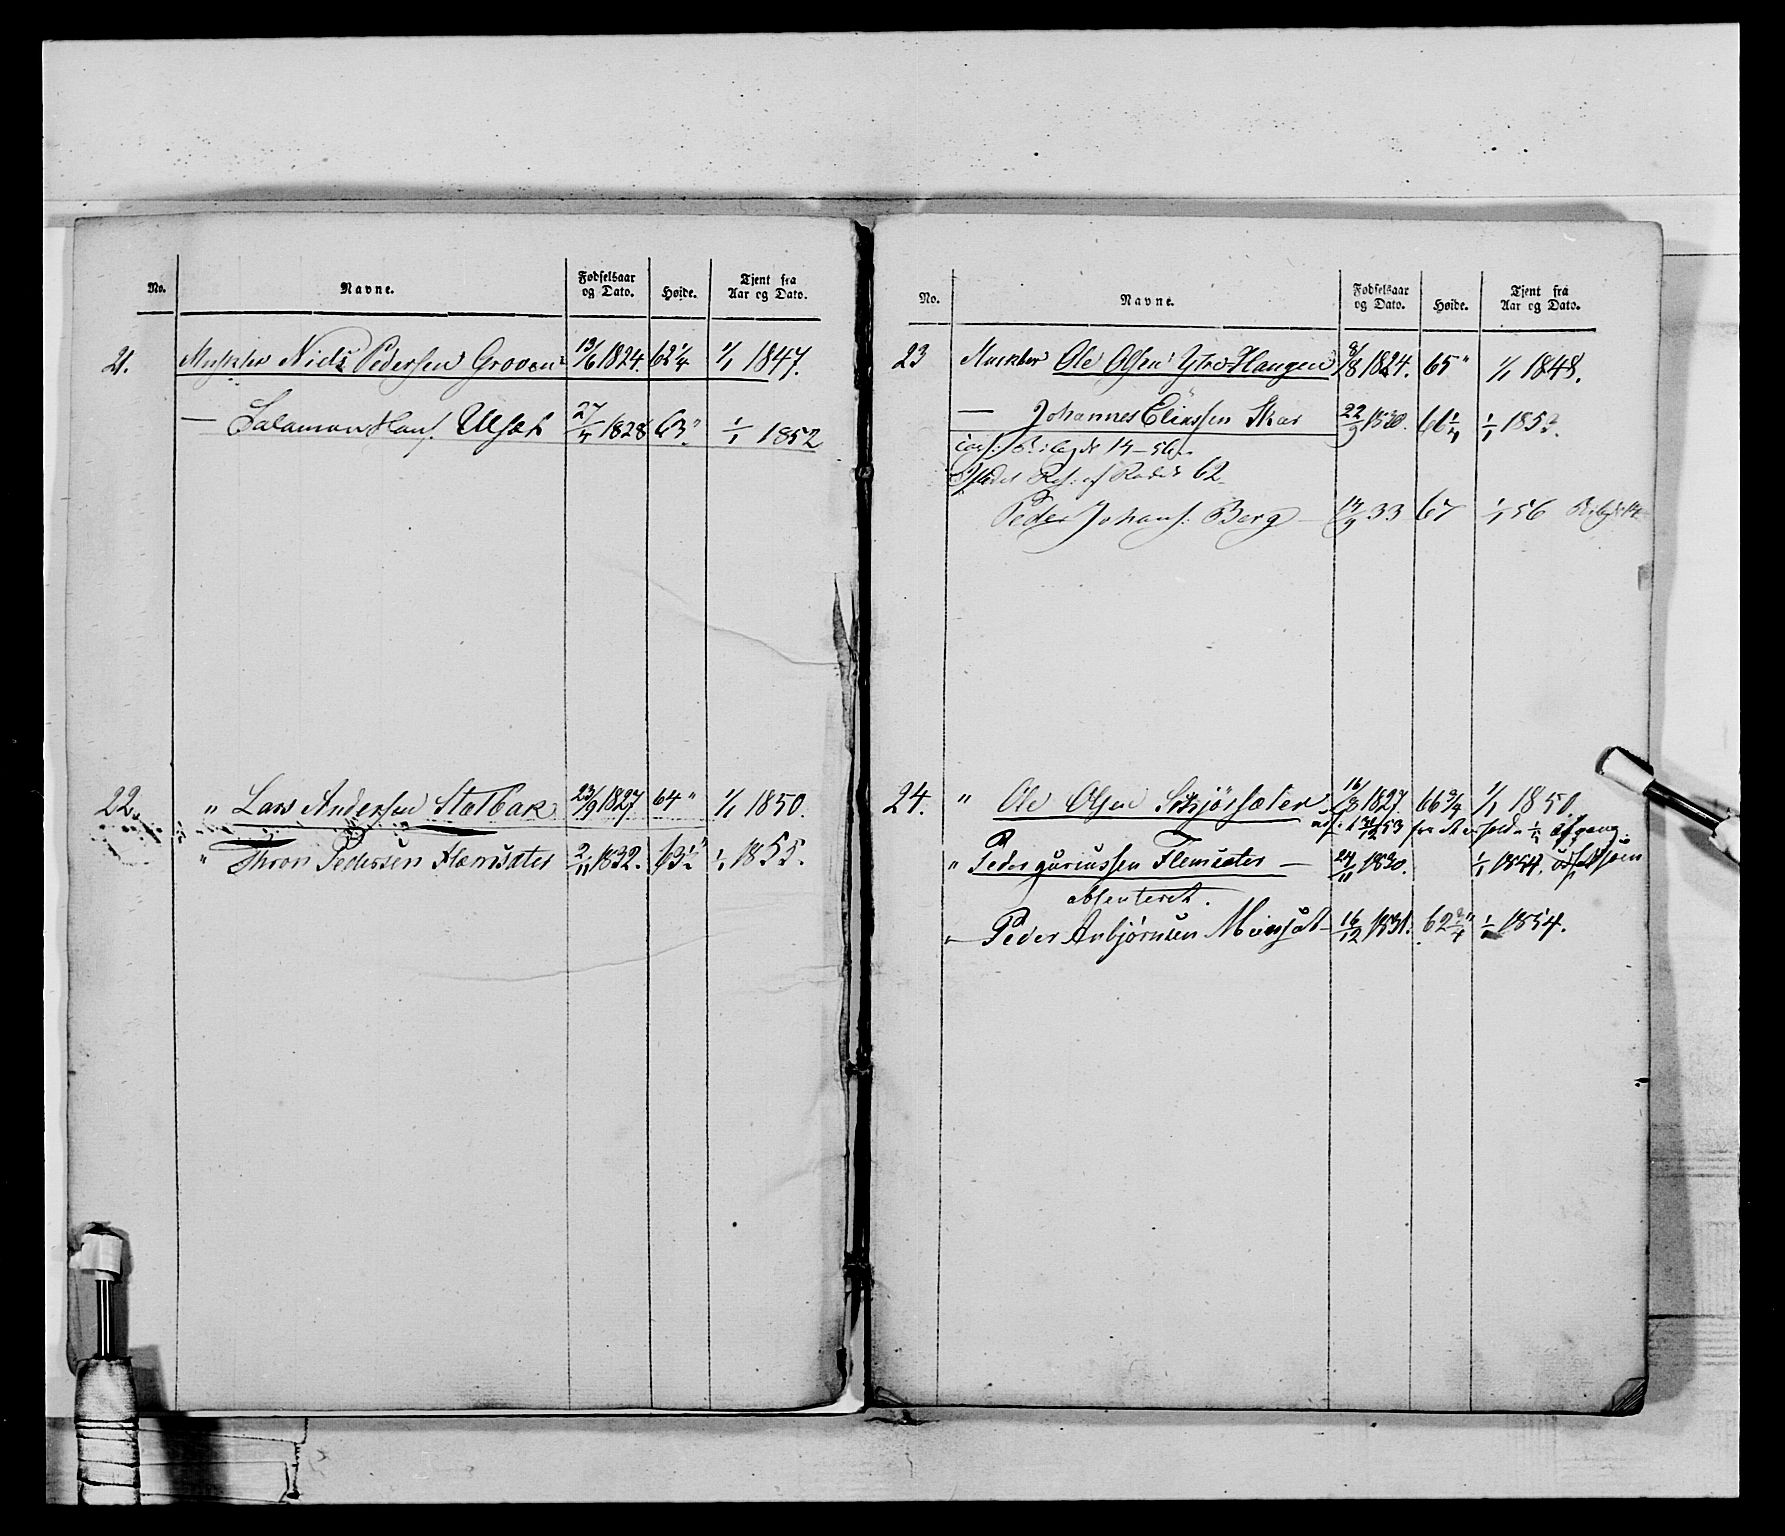 No. Navne. Fødselsaar og Dato. Høide. Tjent fra Aar og Dato.
21. Musketer Niels Pedersen Groven 13/6 1824. 62 1/4 1/1 1847.
— Salamon Hans. Ulsæt 27/4 1828 63" 1/1 1852
22. " Lars Andersen Stølbak 23/9 1827 64" 1/1 1850.
" Thron Pedersen Flemsæter 2/11 1832. 63 1/2" 1/1 1855.
No. Navne. Fødselsaar og Dato. Høide. Tjent fra Aar og Dato.
23 Musketer Ole Olsen Ytre Haugen 8/8 1824. 65" 1/1 1848.
— Johannes Eliassen Skar 22/9 1830. 66 1/4 1/1 1853.
14-56
62
Peder Johans. Berg — 14/9 33 67 1/1 56
24. " Ole Olsen 16/3 1827 66 3/4 1/1 1850.
31/12 53 1/1 afgang
" Peder Guriussen Flemsæter — 24/11 1830. 1/1 1854.
absenteret.
" Peder Anbjørnsen — 16/12 1831. 62 3/4" 1/1 1854.